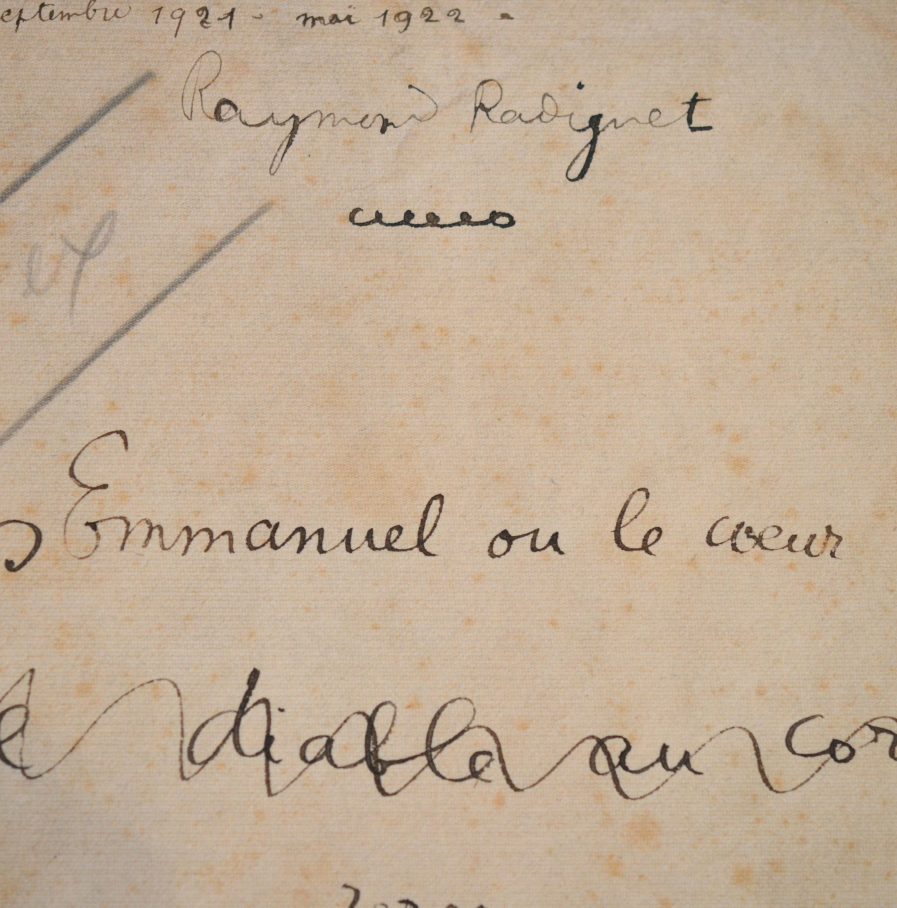 eptembre 1921 - mai 1922 -
Raymond Radiguet
Emmanuel ou le cœur
e diable au cor